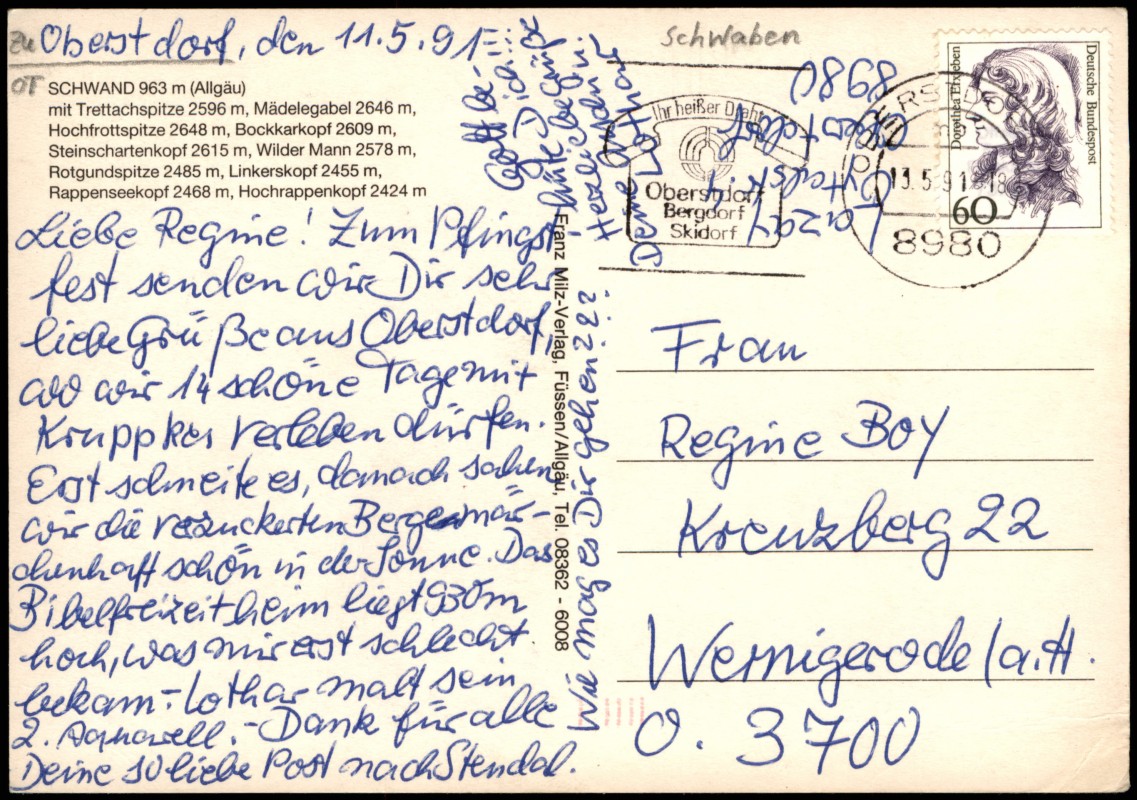 zu Oberstdorf, den 11.5.91
OT
SCHWAND 963 m (Allgäu)
mit Trettachspitze 2596 m, Mädelegabel 2646 m,
Hochfrottspitze 2648 m, Bockkarkopf 2609 m,
Steinschartenkopf 2615 m, Wilder Mann 2578 m,
Rotgundspitze 2485 m, Linkerskopf 2455 m,
Rappenseekopf 2468 m, Hochrappenkopf 2424 m
Liebe Regine! Zum Pfingst
fest senden wir Dir sehr
liebe Grüße aus Oberstdorf,
wo wir 14 schöne Tage mit
verleben dürfen.
Erst schneite es, danach sahen
wir die verzuckerten Berge mär-
chenhaft schön in der Sonne. Das
Bibelfreizeitheim liegt 930m
hoch, was mir erst schlecht
bekam. - Lothar malt sein
2. Aquarell. - Dank für alle
Deine so liebe Post nach Stendal.
Wie mag es Dir gehen???
Gott be-
hüte Dich!!!
Herzlichst
Deine
Lothar
Franz Milz-Verlag, Füssen/Allgäu, Tel. 08362 - 6008
Schwaben
8980
Oberstdorf
Ihr heißer Draht
Oberstdorf
Bergdorf
Skidorf
OBERSTDORF
13.5.91-18
8980
Dorothea Erxleben
Deutsche Bundespost
60
Frau
Regine Boy
Kreuzberg 22
Wernigerode/a.H.
O. 3700